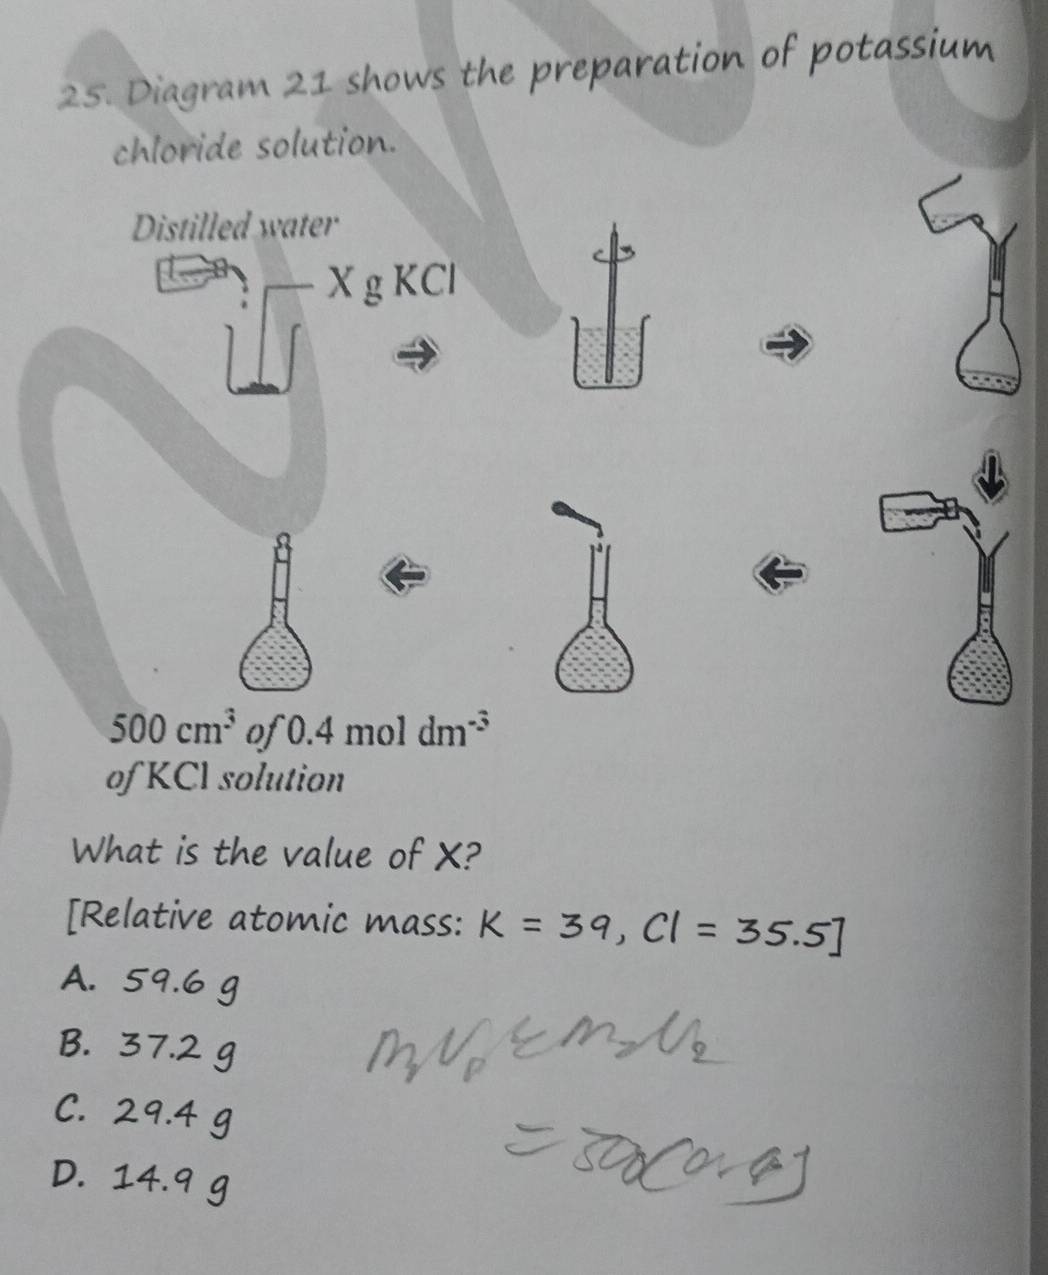 25. Diagram 21 shows the preparation of potassium
chloride solution.
Distilled water
X g KCl
500 cm³ of 0.4 mol dm⁻³
of KCl solution
What is the value of X?
[Relative atomic mass: K = 39, Cl = 35.5]
A. 59.6 g
B. 37.2 g
C. 29.4 g
D. 14.9 g